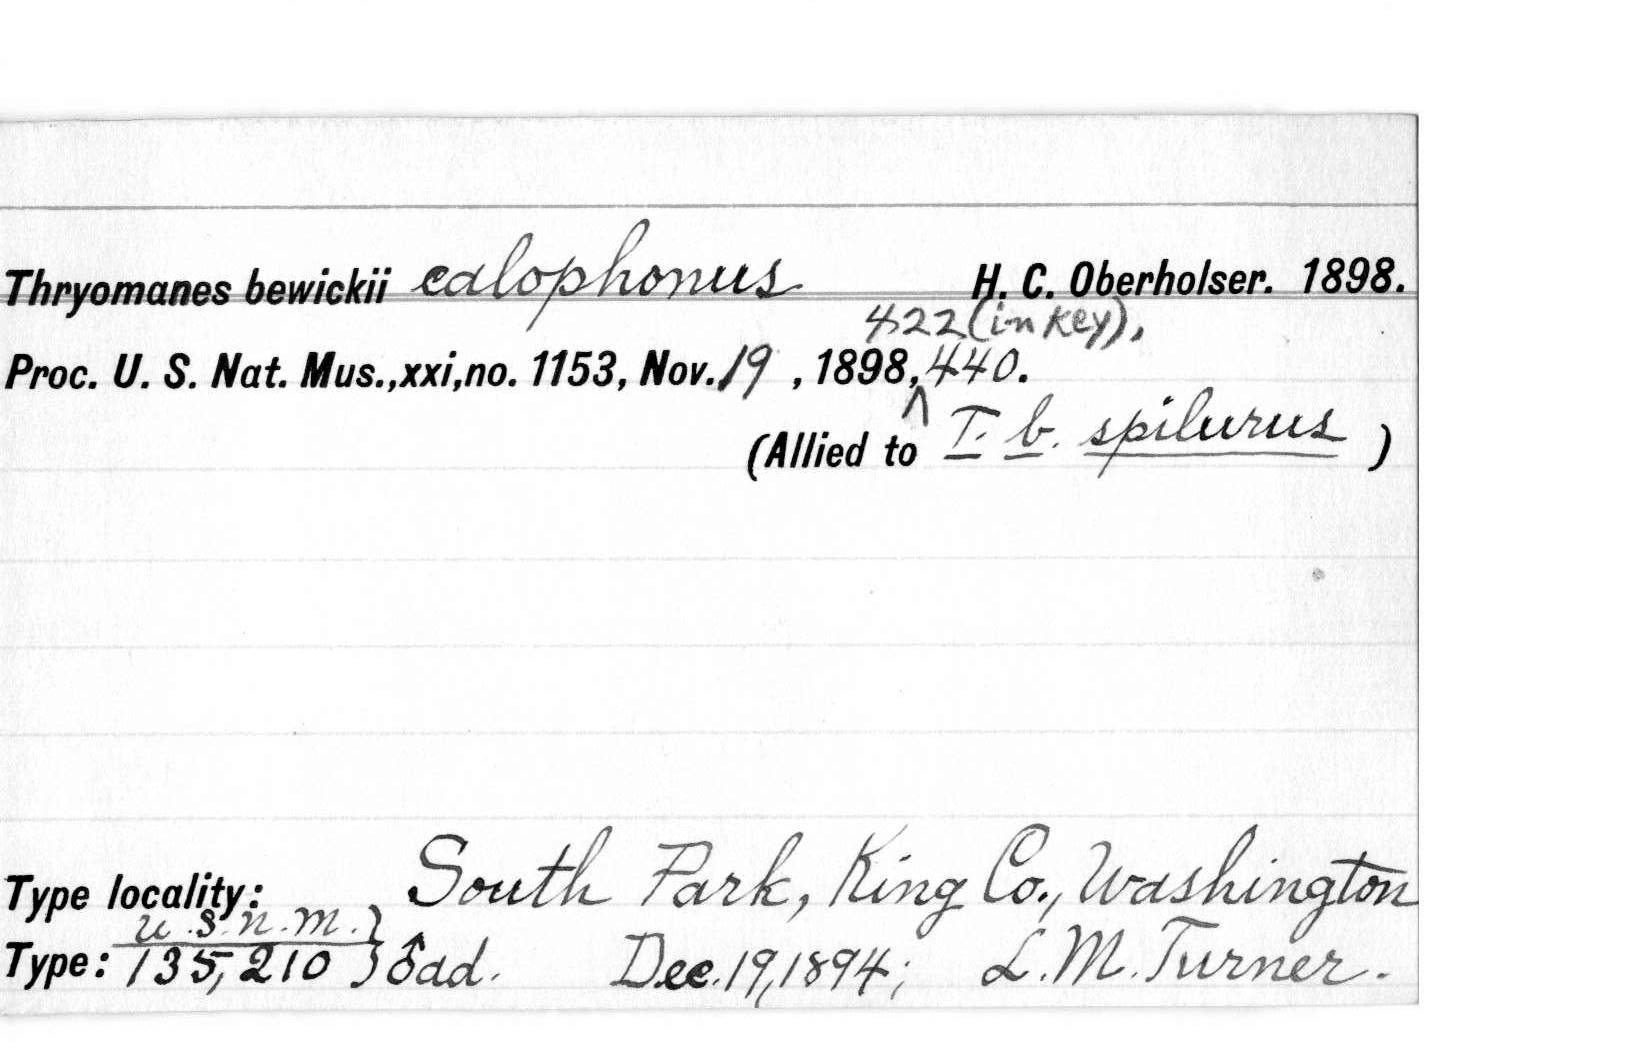 Thryomanes bewickii calophonus H. C. Oberholser. 1898.
422 (in key),
Proc. U. S. Nat. Mus.,xxi,no. 1153, Nov. 19 , 1898, 440.
(Allied to T. b. spilurus )
Type locality: South Park, King Co., Washington
U.S.N.M.
Type: 135,210 } ♂ ad. Dec. 19, 1894; L. M. Turner.